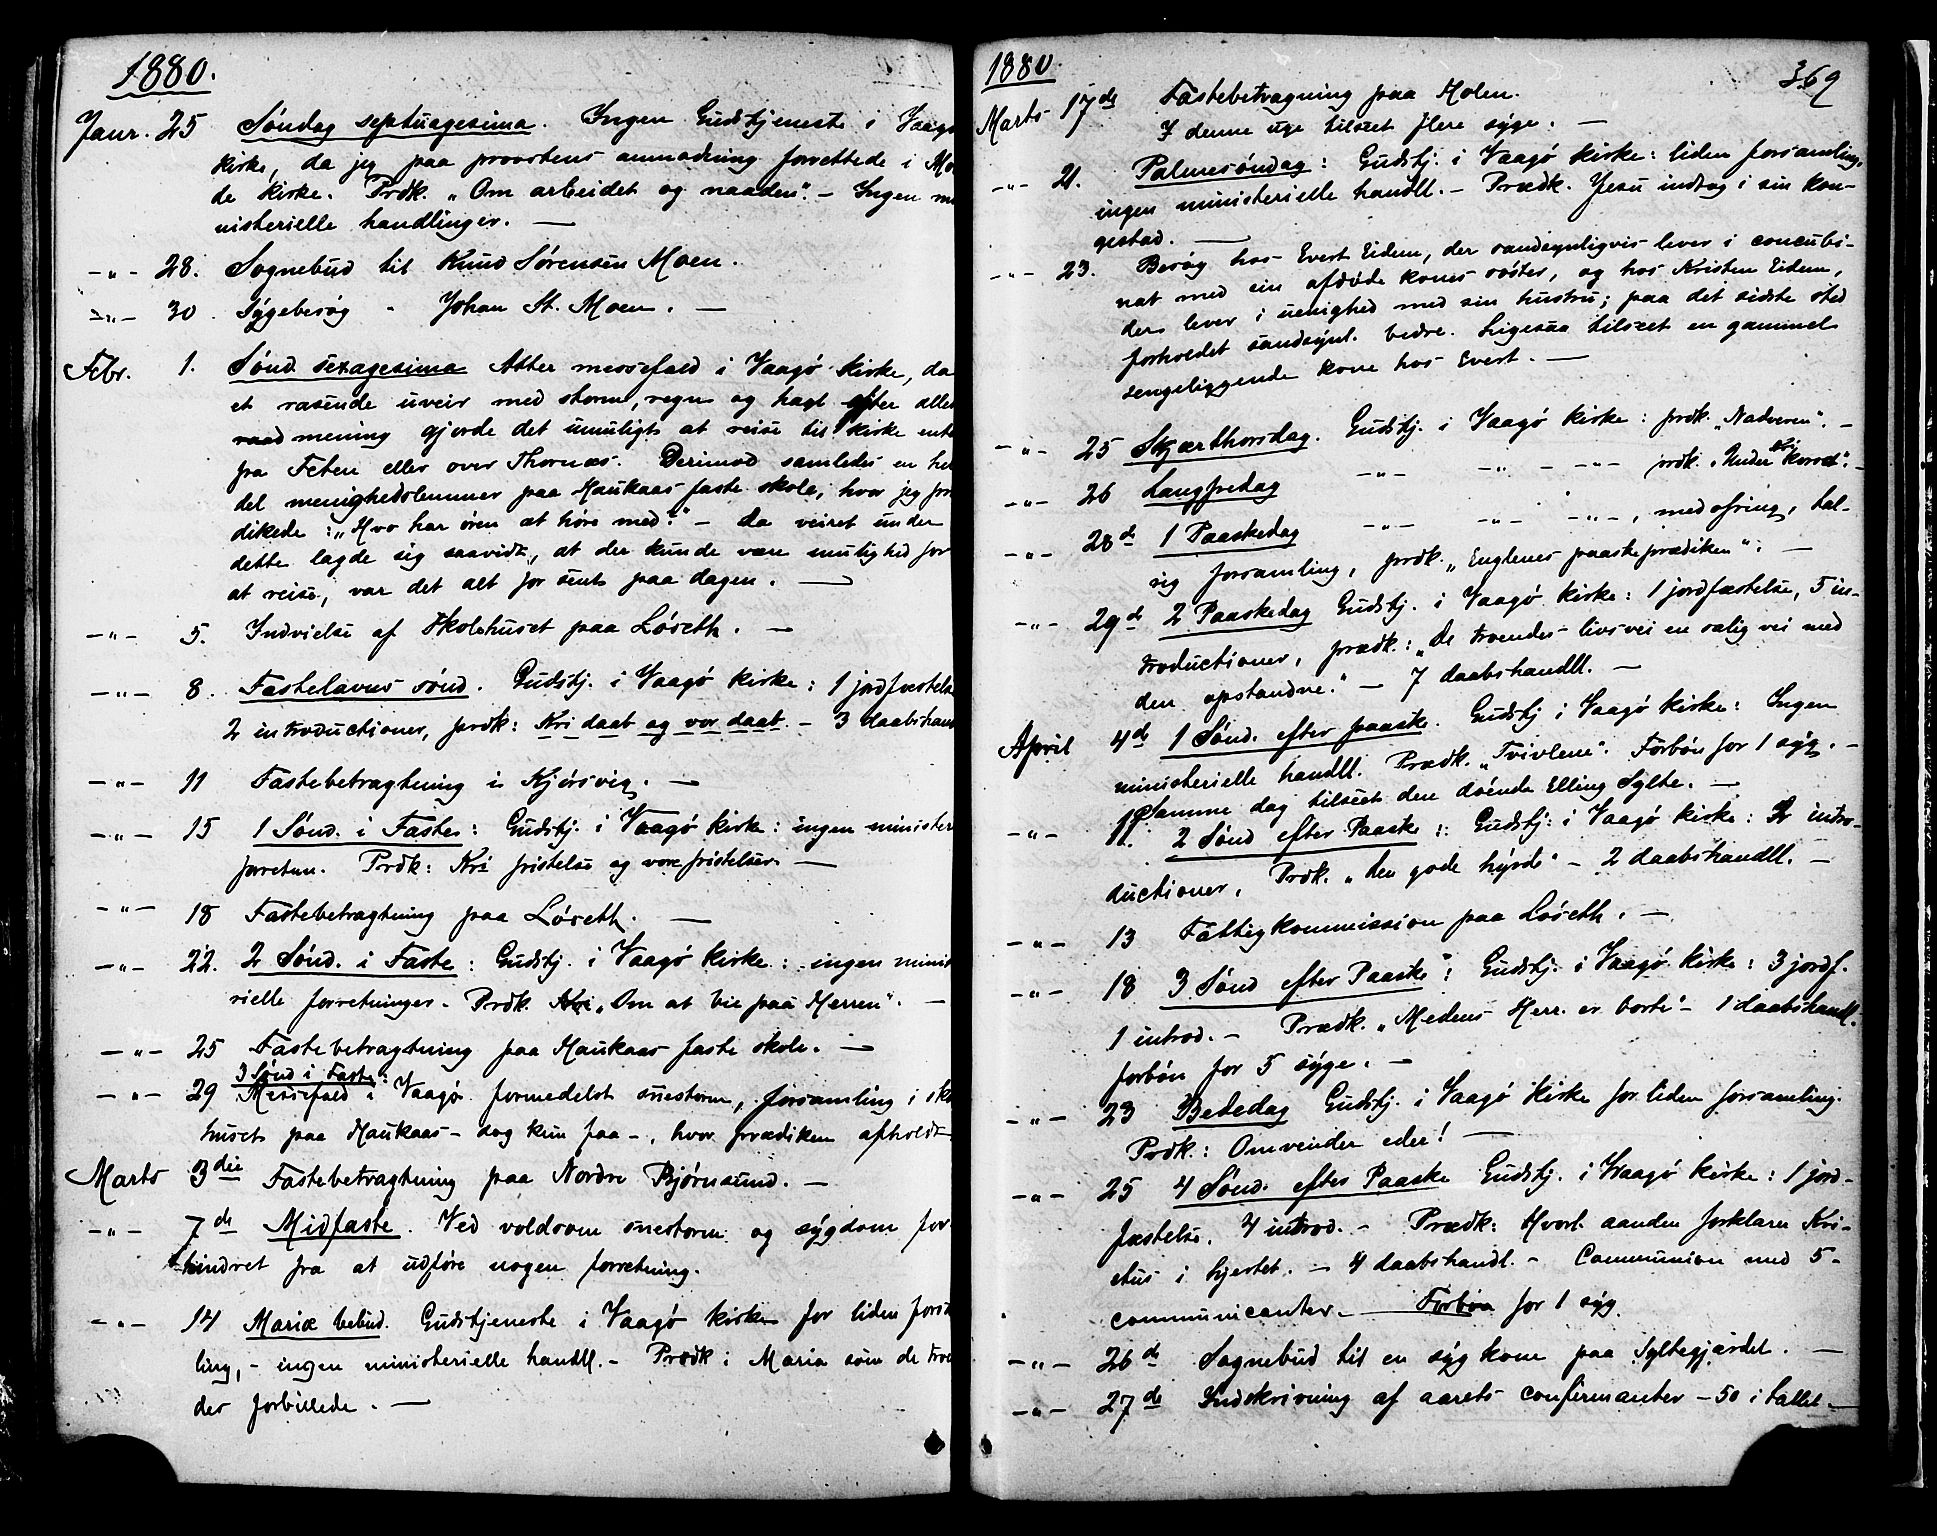 1880.
Janr. 25 Søndag septuagesima. Ingen Gudstjeneste i Vaagø
kirke, da jeg paa provstens anmodning forrettede i Mo
de kirke. Prdk. „Om arbeidet og naaden". – Ingen mi
nisterielle handlinger. —
–"– 28. Sognebud til Knud Sørensen Moen.
–"– 30 Sygebesøg - Johan St. Moen. —
Febr. 1. Sønd sexagesima Atter messefald i Vaagø kirke, da
et rasende uveir med storm, regn og hagl efter alles
mening gjorde det umuligt at reise til kirke ente
fra Feten eller over Thornæs. Derimod samledes en hel
del menighedslemmer paa Haukaas faste skole, hvor jeg præ
dikede: „Hvo har øren at høre med:" – da veiret under
dette lagde sig saavidt, at der kunde være mulighed for
at reise, var det alt for sent paa dagen. —
–"– 5. Indvielse af Skolehuset paa Løseth. —
–"– 8. Fastelavns sønd. Gudstj. i Vaagø kirke: 1 jordfæstelse
2 introductioner, prdk: Kri daab og vor daab. – 3 daabshand
–"– 11 Fastebetragtning i Kjørsvig. —
–"– 15 1 Sønd. i Faste: Gudstj. i Vaagø kirke: ingen minister
forretn. Prdk: Kri fristelse og vore fristelser. —
–"– 18 Fastebetragtning paa Løseth. —
–"– 22. 2 Sønd. i Faste: Gudstj. i Vaagø kirke: ingen minist
rielle forretninger. Prdk. „Om at bie paa Herren". —
–"– 25 Fastebetragtning paa Haukaas faste skole. —
3 Sønd i Faste:
–"– 29 Messefald i Vaagø formedelst snestorm, forsamling i skole
huset paa Haukaas – dog kun faa –, hvor prædiken afholdt
Marts 3die Fastebetragtning paa Nordre Bjørnsund. —
–"– 7de Midfaste. Ved voldsom snestorm og sygdom for-
hindret fra at udføre nogen forretning.
–"– 14 Mariæ bebud. Gudstjeneste i Vaagø kirke for liden forsam
ling, – ingen ministerielle handll. – Prædk: Maria som de troen
des forbillede. —
1880
369
Marts 17de Fastebetragning paa Holen.
I denne uge tilseet flere syge. —
–"– 21. Palmesøndag: Gudstj. i Vaagø kirke: liden forsamling,
ingen ministerielle handll. – Prædk. Jesu indtog i sin kon-
gestad. —
–"– 23. Besøg hos Evert Eidem, der sandsynligvis lever i concubi-
nat med sin afdøde kones søster, og hos Kristen Eidem,
der lever i uenighed med sin hustru; paa det sidste sted
forholdet sandsynl. bedre. Ligesaa tilseet en gammel
sengeliggende kone hos Evert. —
–"– 25 Skjærthorsdag. Gudstj. i Vaagø kirke: prdk. „Nadveren". —
–"– 26 Langfredag –"– –"– –"– prdk. „Under Kri korset". –
–"– 28d 1 Paaskedag –"– –"– –"–, med ofring, tal-
rig forsamling, prdk. „Englenes paaskeprædiken". —
–"– 29d 2 Paaskedag Gudstj. i Vaagø kirke: 1 jordfæstelse, 5 in-
troductioner, prædk.: „De troendes livsvei en salig vei med
den opstandne." – 7 daabshandll. —
April 4de 1 Sønd. efter paaske. Gudstj i Vaagø kirke: Ingen
ministerielle handll. Prædk. „Tvivlene". Forbøn for 1 syg. –
Samme dag tilseet den døende Elling Sylte. —
–"– 11. 2 Sønd efter Paaske: Gudstj: i Vaagø kirke: 2 intro-
ductioner. Prdk. „den gode hyrde" – 2 daabshandll. —
–"– 13 Fattigkommission paa Løseth. —
–"– 18 3 Sønd efter Paaske: Gudstj. i Vaagø kirke: 3 jordf.
1 introd. – Prædk. „Medens Herr. er borte" – 1 daabshandl.
forbøn for 5 syge. —
–"– 23 Bededag Gudstj. i Vaagø kirke for liden forsamling.
Prdk.: Omvender eder! —
–"– 25 4 Sønd. efter Paaske Gudstj. i Vaagø kirke: 1 jord-
fæstelse, 4 introd. – Prædk: Hvorl. aanden forklarer Kri-
stus i hjertet. – 4 daabshandl. – Communion med 5-
communicanter. — Forbøn for 1 syg.
–"– 26de Sognebud til en syg kone paa Syltegjærdet. —
–"– 27de Indskrivning af aarets confirmanter – 50 i tallet. —